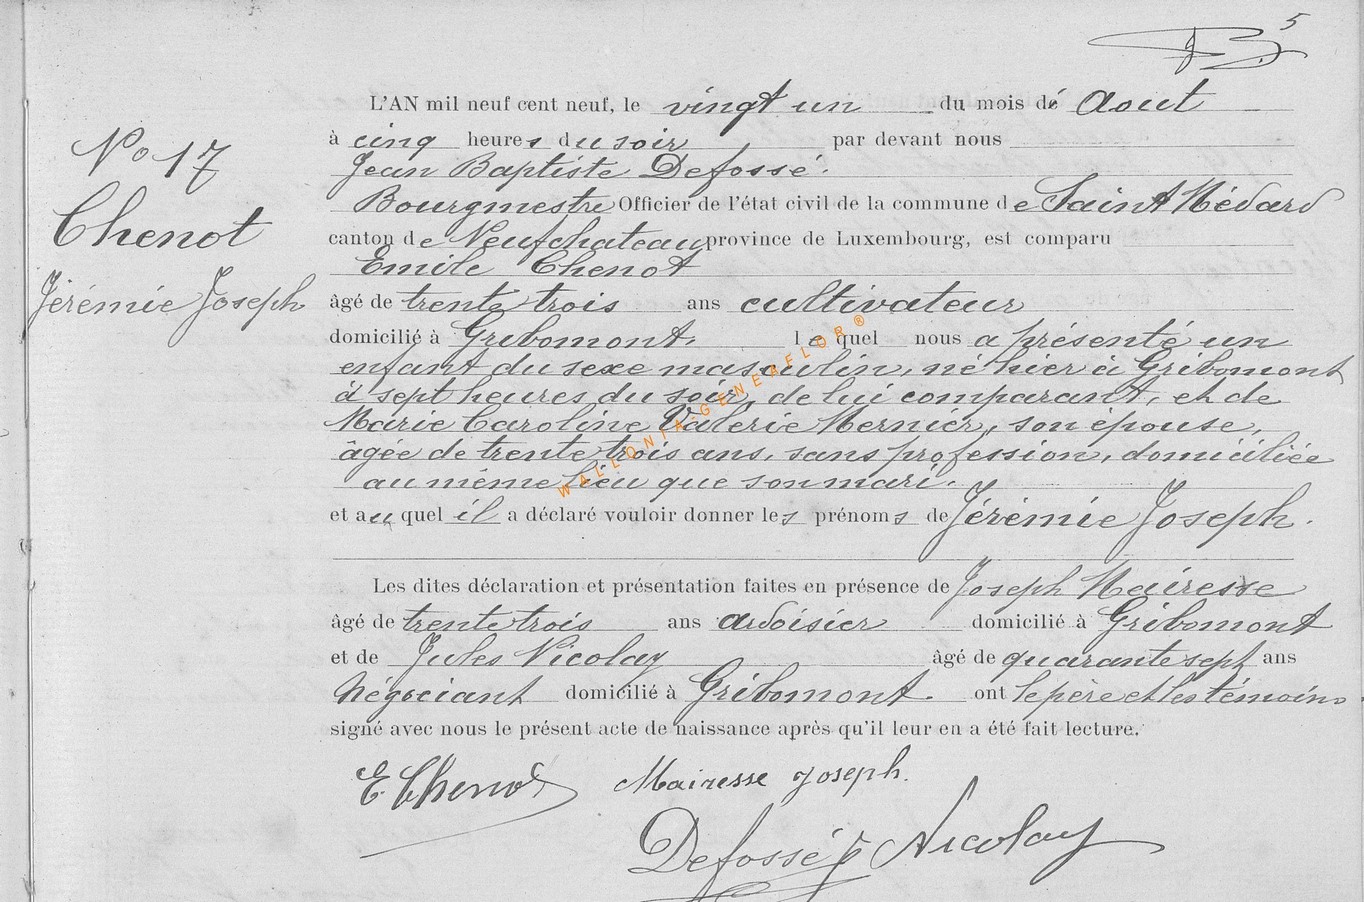 5
L'AN mil neuf cent neuf, le vingt un du mois de Aout
à cinq heures du soir par devant nous
Jean Baptiste Defossé.
Bourgmestre Officier de l'état civil de la commune de Saint Médard
canton de Neufchateau province de Luxembourg, est comparu
Emile Chenot
âgé de trente trois ans cultivateur
domicilié à Gribomont. lequel nous a présenté un
enfant du sexe masculin, né hier à Gribomont
à sept heures du soir, de lui comparant, et de
Marie Caroline Valérie Mernier, son épouse,
âgée de trente trois ans, sans profession, domiciliée
au même lieu que son mari.
et auquel il a déclaré vouloir donner les prénoms de Jérémie Joseph.
Les dites déclaration et présentation faites en présence de Joseph Mairesse
âgé de trente trois ans ardoisier domicilié à Gribomont
et de Jules Nicolay âgé de quarante sept ans
négociant domicilié à Gribomont. ont le père et les témoins
signé avec nous le présent acte de naissance après qu'il leur en a été fait lecture.
E Chenot Mairesse Joseph.
Defossé J Nicolay
No 17
Chenot
Jérémie Joseph
WALLONIA-GENEAFLOR®